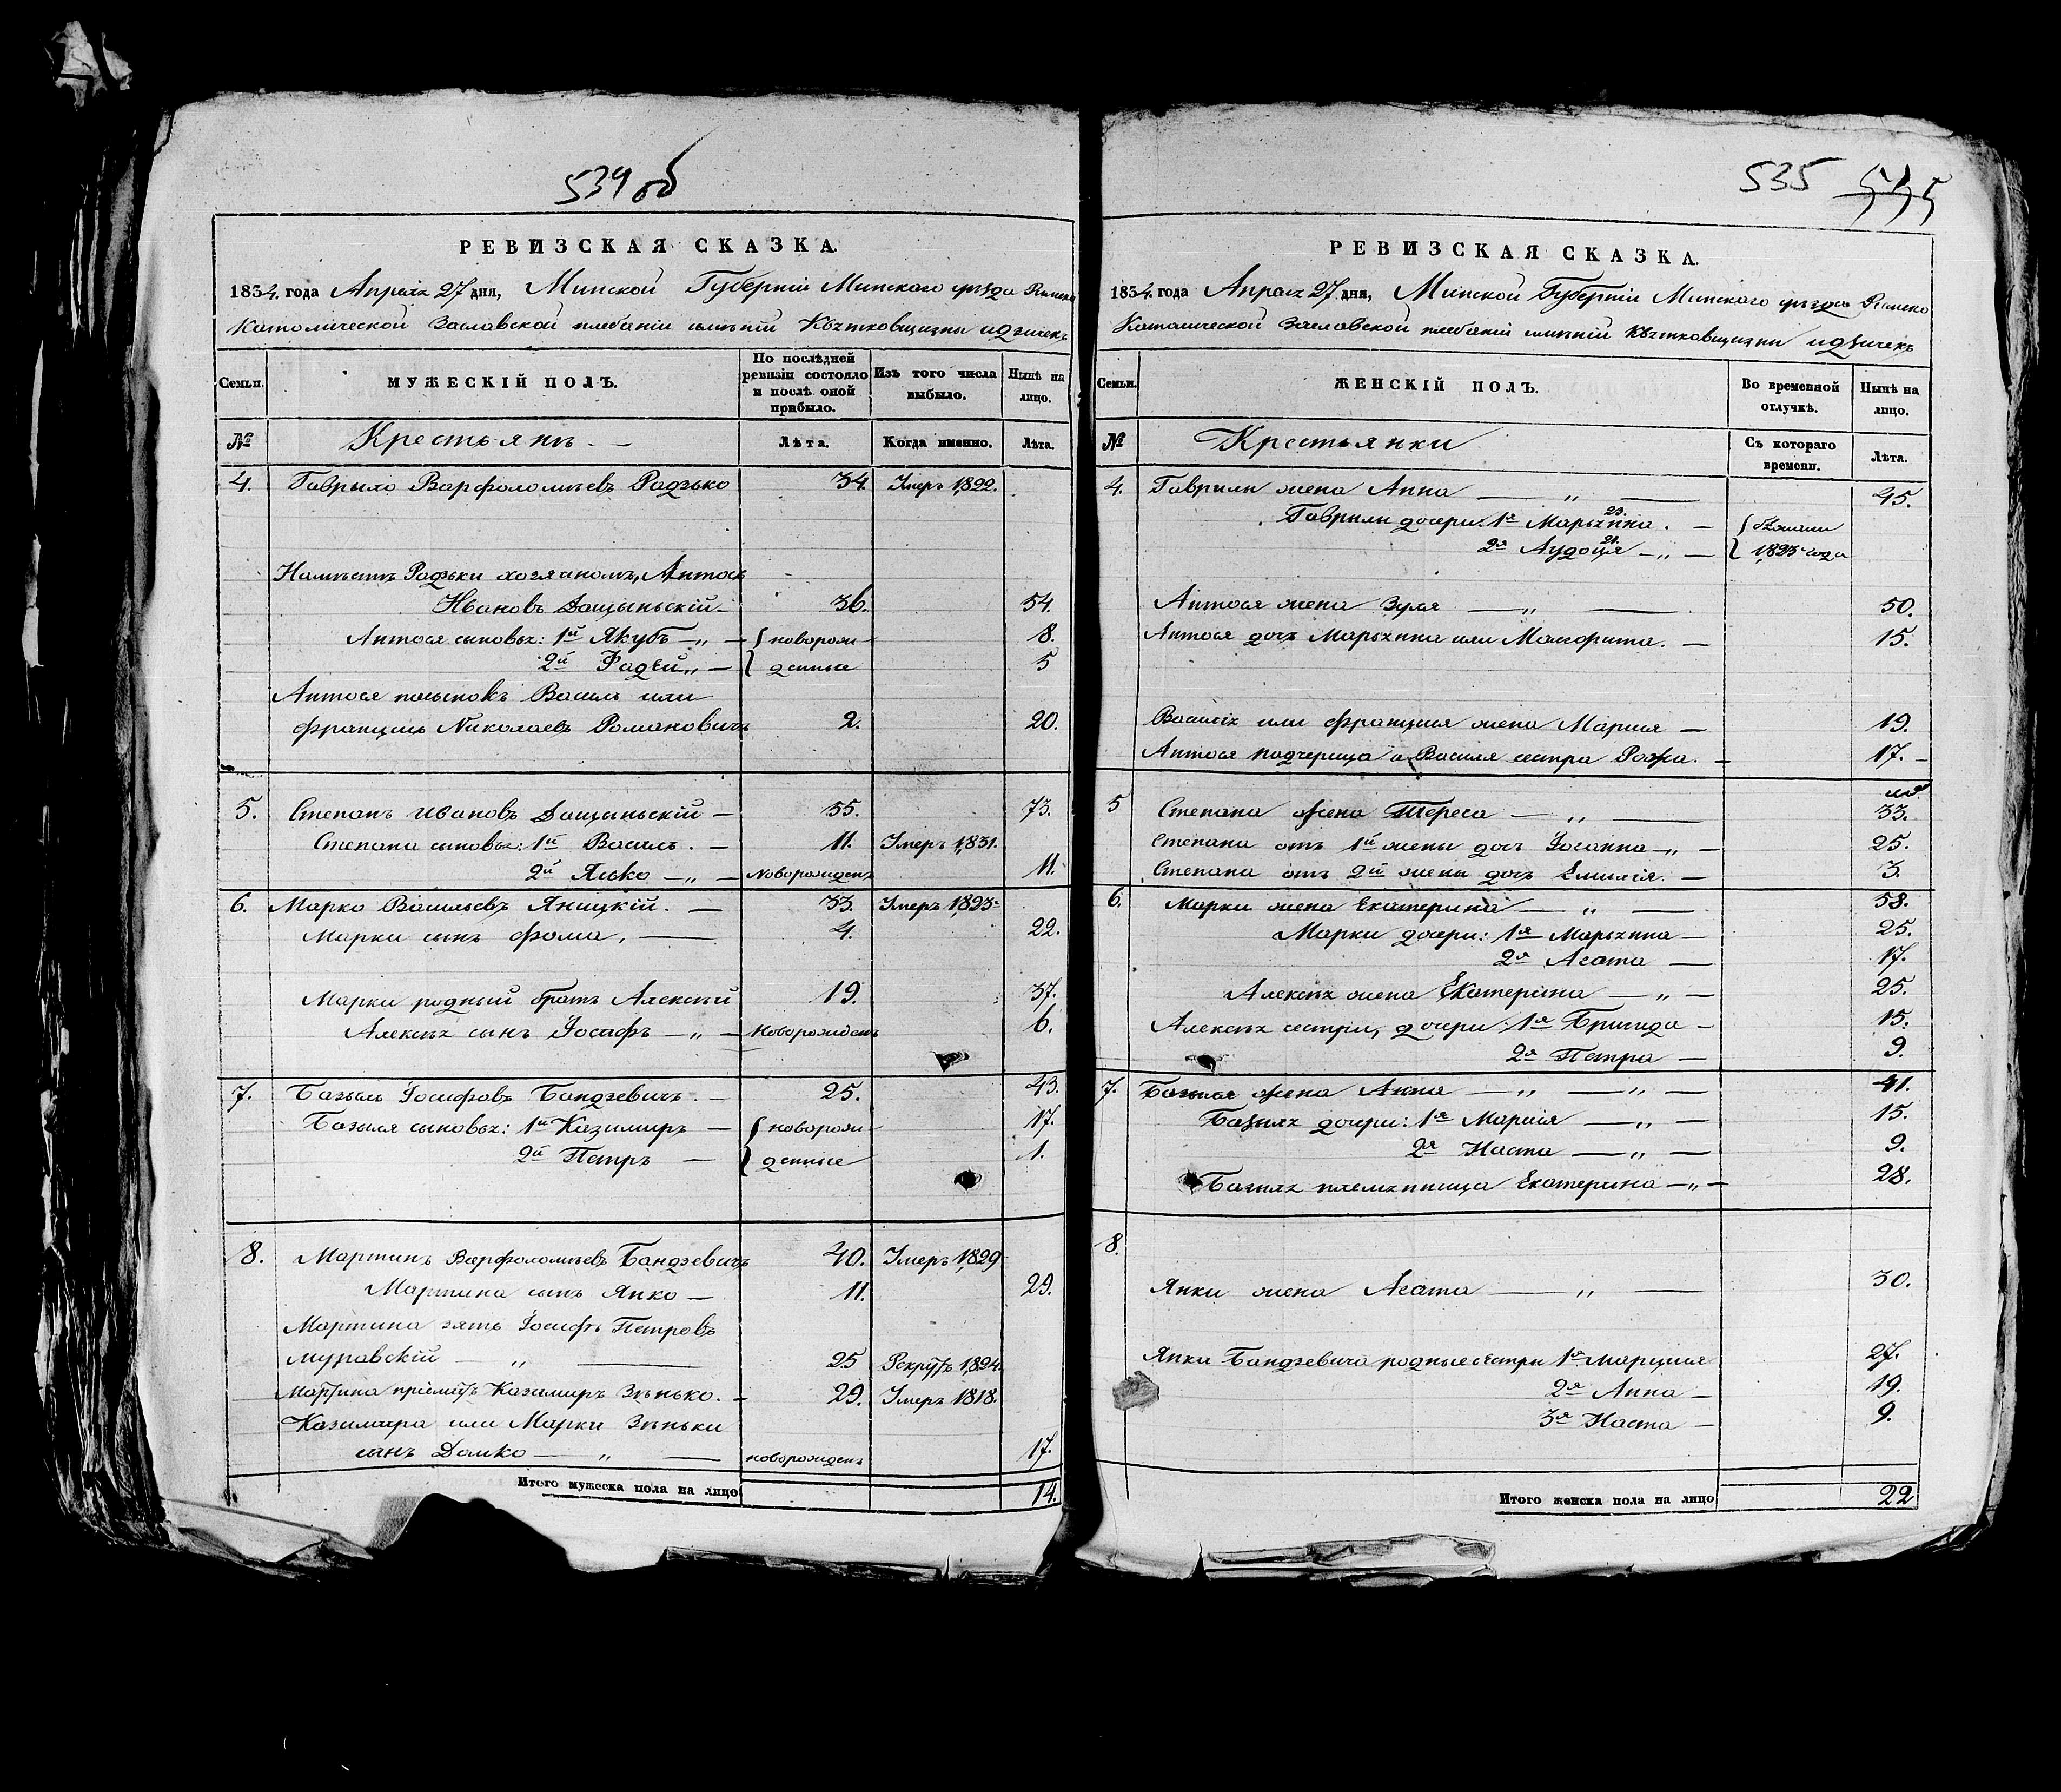 534 об
РЕВИЗСКАЯ СКАЗКА.
1834. года Апреля 27 дня, Минской Губерніи Минскаго уѣзда Римско
Католической Заславской плебаніи имѣній
Семьи.
МУЖЕСКІЙ ПОЛЪ.
По послѣдней ревизіи состояло и послѣ оной прибыло.
Изъ того числа выбыло.
Нынѣ на лицо.
№ Крестьянъ. — Лѣта. Когда именно. Лѣта.
4. Гаврыло Варфоломѣевъ Радзько 34. Умеръ 1822.
Намѣстъ Радзьки хозяиномъ, Антось
Ивановъ Дащыньскій 36. 54.
Антося сыновья: 1й Якубъ —„— { новорож 8.
2й Фадѣй „ — } денные 5
Антося пасынокъ Василь или
Францишъ Николаевъ Романовичъ 2. 20.
5. Степанъ Ивановъ Дащыньскій — 55. 73.
Степана сыновья: 1й Василь. — 11. Умеръ 1831.
2й Янько —„— Новорожденъ 11.
6. Марко Васильевъ Яницкій. — 33. Умеръ 1823.
Марки сынъ Фома, — 4. 22.
Марки родный братъ Алексѣй 19. 37.
Алексѣя сынъ Іосифъ —„— Новорожденъ 6.
7. Базыль Іосифовъ Бандзевичъ. — 25. 43.
Базыля сыновья: 1й Казимиръ — { новорож 17.
2й Петръ — } денные 1.
8. Мартинъ Варфоломѣевъ Бандзевичъ 40. Умеръ 1829
Мартина сынъ Янко — 11. 29.
Мартина зять Іосифъ Петровъ
Муравскій — „ — 25 Рекрутъ 1824.
Мартина пріемышъ Казимиръ Зѣнько. — 29. Умеръ 1818.
Казимира или Марки Зѣньки
сынъ Домко — „ — новорожденъ 17.
Итого мужеска пола на лицо 14.
535 535
РЕВИЗСКАЯ СКАЗКА.
1834. года Апреля 27 дня, Минской Губерніи Минскаго уѣзда Римско
Католической Заславской плебаніи имѣній
Семьи.
ЖЕНСКІЙ ПОЛЪ.
Во временной отлучкѣ.
Нынѣ на лицо.
№ Крестьянки Съ котораго времени. Лѣта.
4. Гаврилы жена Анна — „ — 45.
Гаврилы дочери: 1я Марьянна 23. — {
2я Аудоця 21. —„— { 1823 года
Антося жена Зуля — „ — 50.
Антося дочь Марьянна или Маргрита. — 15.
Василя или Францишка жена Марыя — 19.
Антося падчерица а Василя сестра Рожа. — 17.
5 Степана жена Тереса — „ — 33.
Степана отъ 1й жены дочь Іоганна —„— 25.
Степана отъ 2й жены дочь Емилія. — 3.
6. Марки жена Екатерина — „ — 58.
Марки дочери: 1я Марьянна — 25.
2я Агата — 17.
Алексѣя жена Екатерина — „ — 25.
Алексѣя сестры, дочери: 1я Бригида — 15.
2я Петра — 9.
7. Базыля жена Анна — „ — „ — 41.
Базыля дочери: 1я Марыя — „ — 15.
2я Наста — „ — 9.
Базыля племянница Екатерина —„— 28.
8.
Янки жена Агата — „ — 30.
Янки Бандзевича родные сестры 1я Марцыя 27.
2я Анна — 19.
3я Наста — 9.
Итого женска пола на лицо 22